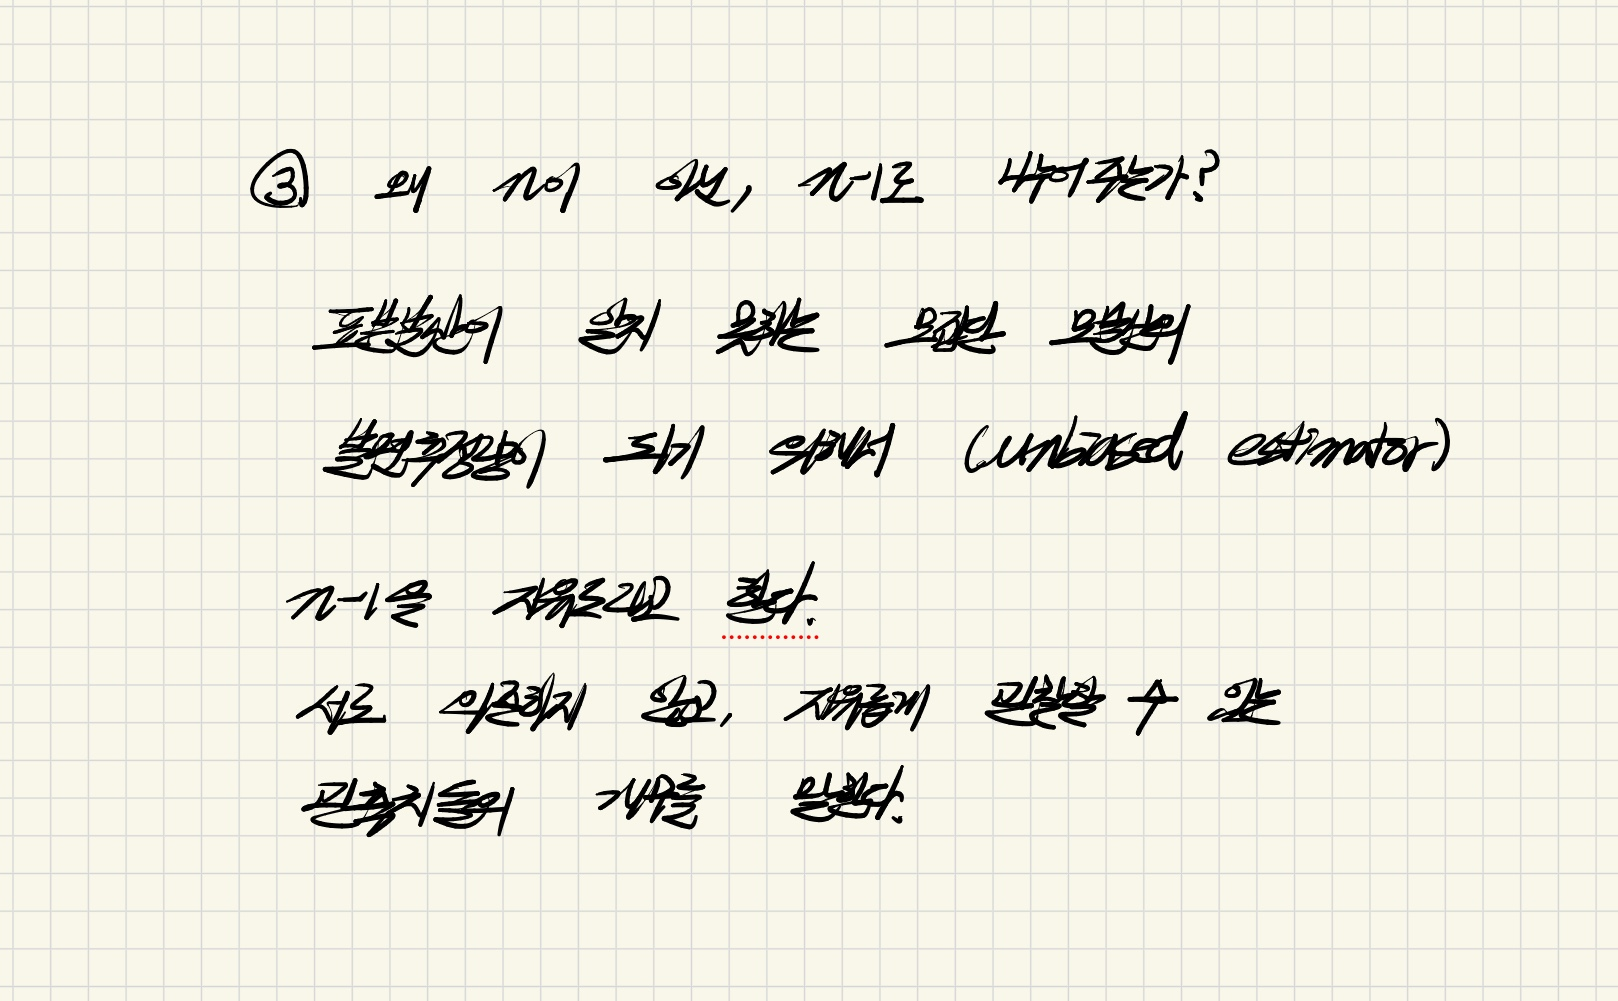 ③ 왜 n이 아닌, n-1로 나누어주는가?
표본분산이 알지 못하는 모집단 모분산의
불편추정량이 되기 위해서 (unbiased estimator)
n-1을 자유도라고 한다.
서로 의존하지 않고, 자유롭게 관찰할 수 있는
관측치들의 개수를 말한다.